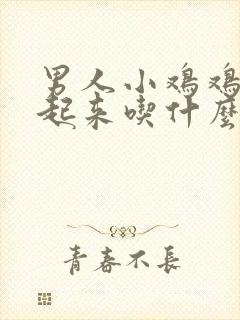 男人小鸡鸡
起来喫什麼
青春不長